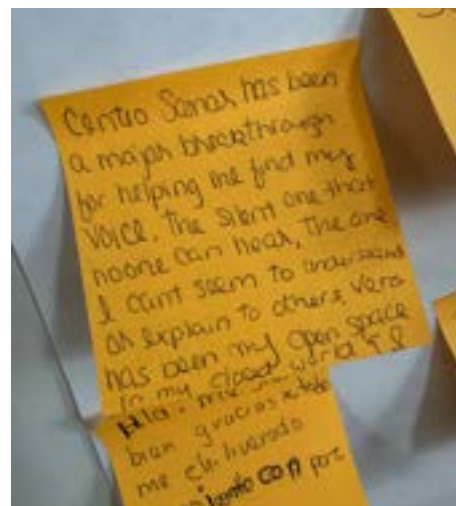 Centro Sanar has been
a major breakthrough
for helping me find my
voice. The silent one that
noone can hear, The one
I cant seem to understand
or explain to others, Vero
has been my open space
in my closed world
bien gracias
me
con por